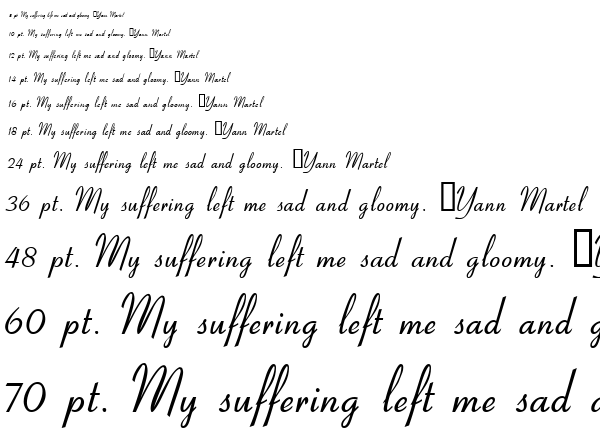 8 pt. My suffering left me sad and gloomy. □Yann Martel
10 pt. My suffering left me sad and gloomy. □Yann Martel
12 pt. My suffering left me sad and gloomy. □Yann Martel
14 pt. My suffering left me sad and gloomy. □Yann Martel
16 pt. My suffering left me sad and gloomy. □Yann Martel
18 pt. My suffering left me sad and gloomy. □Yann Martel
24 pt. My suffering left me sad and gloomy. □Yann Martel
36 pt. My suffering left me sad and gloomy. □Yann Martel
48 pt. My suffering left me sad and gloomy. □Y
60 pt. My suffering left me sad and g
70 pt. My suffering left me sad a